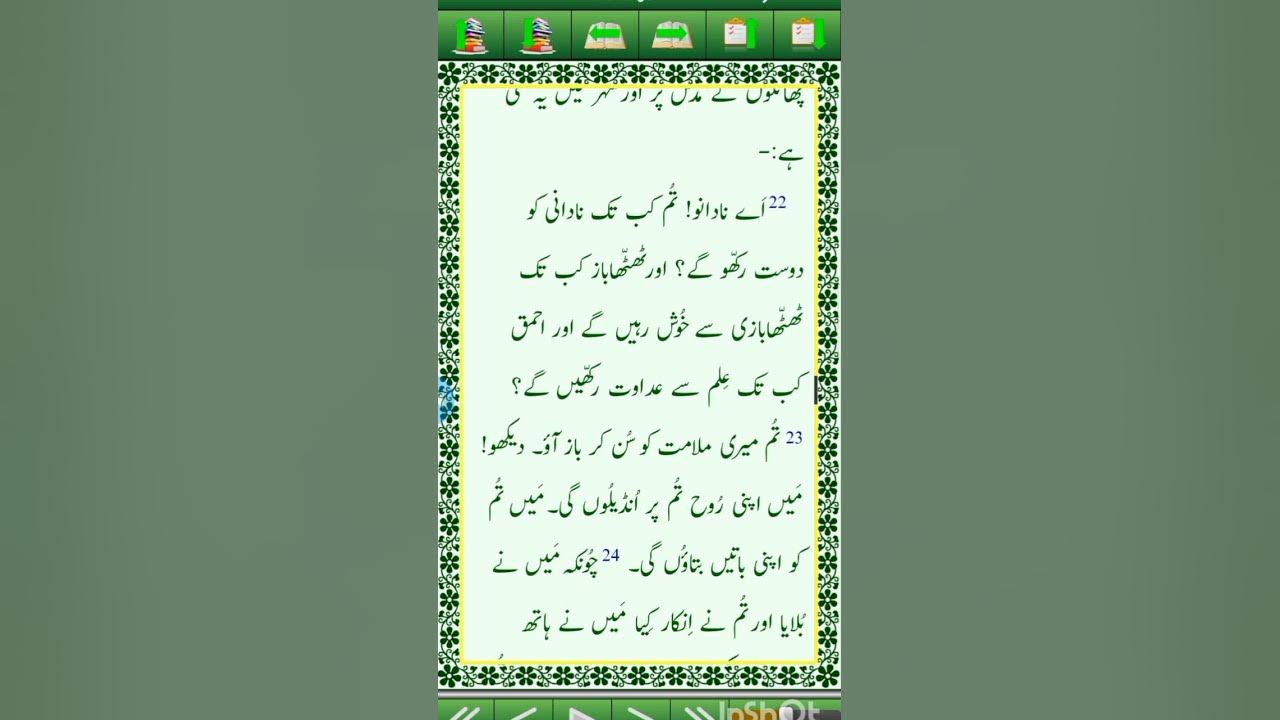 پھاٹکوں کے مدخل پر اور شہر میں یہ کہتی
ہے:-
22 اَے نادانو! تُم کب تک نادانی کو
دوست رکھّو گے؟ اورٹھٹّھاباز کب تک
ٹھٹّھابازی سے خُوش رہیں گے اور احمق
کب تک عِلم سے عداوت رکھّیں گے؟
23 تُم میری ملامت کو سُن کر باز آؤ۔ دیکھو!
مَیں اپنی رُوح تُم پر اُنڈیلُوں گی۔ مَیں تُم
کو اپنی باتیں بتاؤُں گی۔ 24 چُونکہ مَیں نے
بُلایا اورتُم نے اِنکار کِیا مَیں نے ہاتھ
InShOt